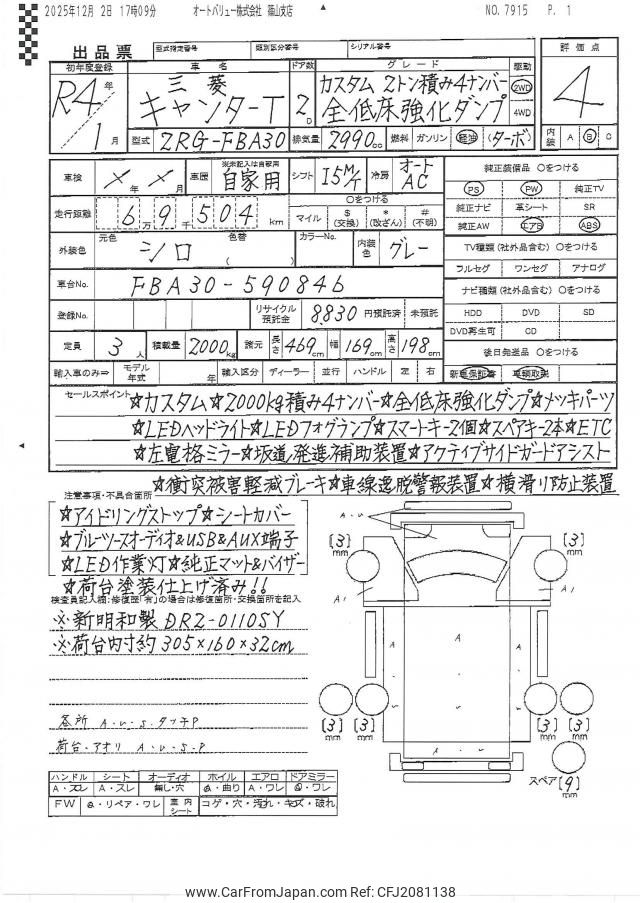 2025年12月 2日 17時09分 オートバリュー株式会社 篠山支店 NO. 7915 P. 1
出品票 型式指定番号 類別区分番号 シリアル番号
初年度登録 車名 ドア数 グレード 駆動 評価点
R4年 1月 三菱 キャンターT 2D カスタム 2トン積み4ナンバー 全低床強化ダンプ 2WD 4WD 4
型式 2RG-FBA30 排気量 2990cc 燃料 ガソリン 軽油 (ターボ) 内装 A B C
車検 ×年×月 車歴 ※未記入は自家用 自家用 シフト I5M/T 冷房 オートAC 純正装備品 〇をつける
PS PW 純正TV
走行距離 6万9千504km 〇をつける マイル $(交換) *(改ざん) #(不明)
純正ナビ 革シート SR
純正AW エアB ABS
外装色 元色 シロ 色替 ( ) カラーNo. 内装色 グレー
TV種類(社外品含む) 〇をつける
フルセグ ワンセグ アナログ
車台No. FBA30-590846
ナビ種類(社外品含む) 〇をつける
登録No. リサイクル預託金 8,830 円預託済 未預託
HDD DVD SD
DVD再生可 CD
定員 3人 積載量 2000kg 諸元 長さ 469cm 幅 169cm 高さ 198cm
後日発送品 〇をつける
輸入車のみ⇒ モデル年式 年 輸入区分 ディーラー 並行 ハンドル 左 右
新車保証書 車輌取説
セールスポイント ☆カスタム☆2000kg積み4ナンバー☆全低床強化ダンプ☆メッキパーツ
☆LEDヘッドライト☆LEDフォグランプ☆スマートキー2個☆スペアキー2本☆ETC
☆左電格ミラー☆坂道発進補助装置☆アクティブサイドガードアシスト
☆衝突被害軽減ブレーキ☆車線逸脱警報装置☆横滑り防止装置
注意事項・不具合箇所
☆アイドリングストップ☆シートカバー
☆ブルーツースオーディオ&USB&AUX端子
☆LED作業灯☆純正マット&バイザー
☆荷台塗装仕上げ済み!!
検査員記入欄:修復歴「有」の場合は修復箇所・交換箇所を記入
※新明和製 DRZ-01105Y
※荷台内寸約305×160×32cm
各所 A・U・S・タッチP
荷台・アオリ A・U・S・P
A・U
[3]mm [3]mm
A1 A1
A A A
[3]mm [3]mm [3]mm [3]mm
A
スペア [9]mm
ハンドル シート オーディオ ホイル エアロ ドアミラー
A・スレ A・スレ 無し・穴 A・曲り A・ワレ A・ワレ
FW A・リペア・ワレ 室内シート コゲ・穴・汚れ・キズ・破れ
www.CarFromJapan.com Ref: CFJ2081138